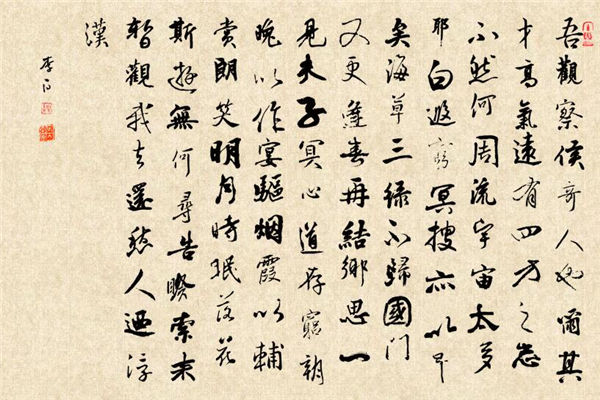 吾觀察侯奇人也爾其
才高氣遠有四方之志
不然何周流宇宙太多
耶白遐窮冥搜亦以早
矣海草三緑不歸國門
又更春再結鄉思一
見夫子冥心道存窮朝
晚以作宴驅烟霞以輔
賞朗笑明月時眠落花
斯遊無何尋告睽索来
暫觀我去還愁人迺浮
漢
李白